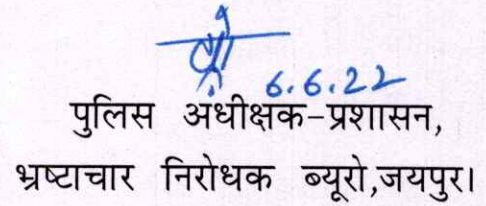 6.6.22
पुलिस अधीक्षक-प्रशासन,
भ्रष्टाचार निरोधक ब्यूरो,जयपुर।